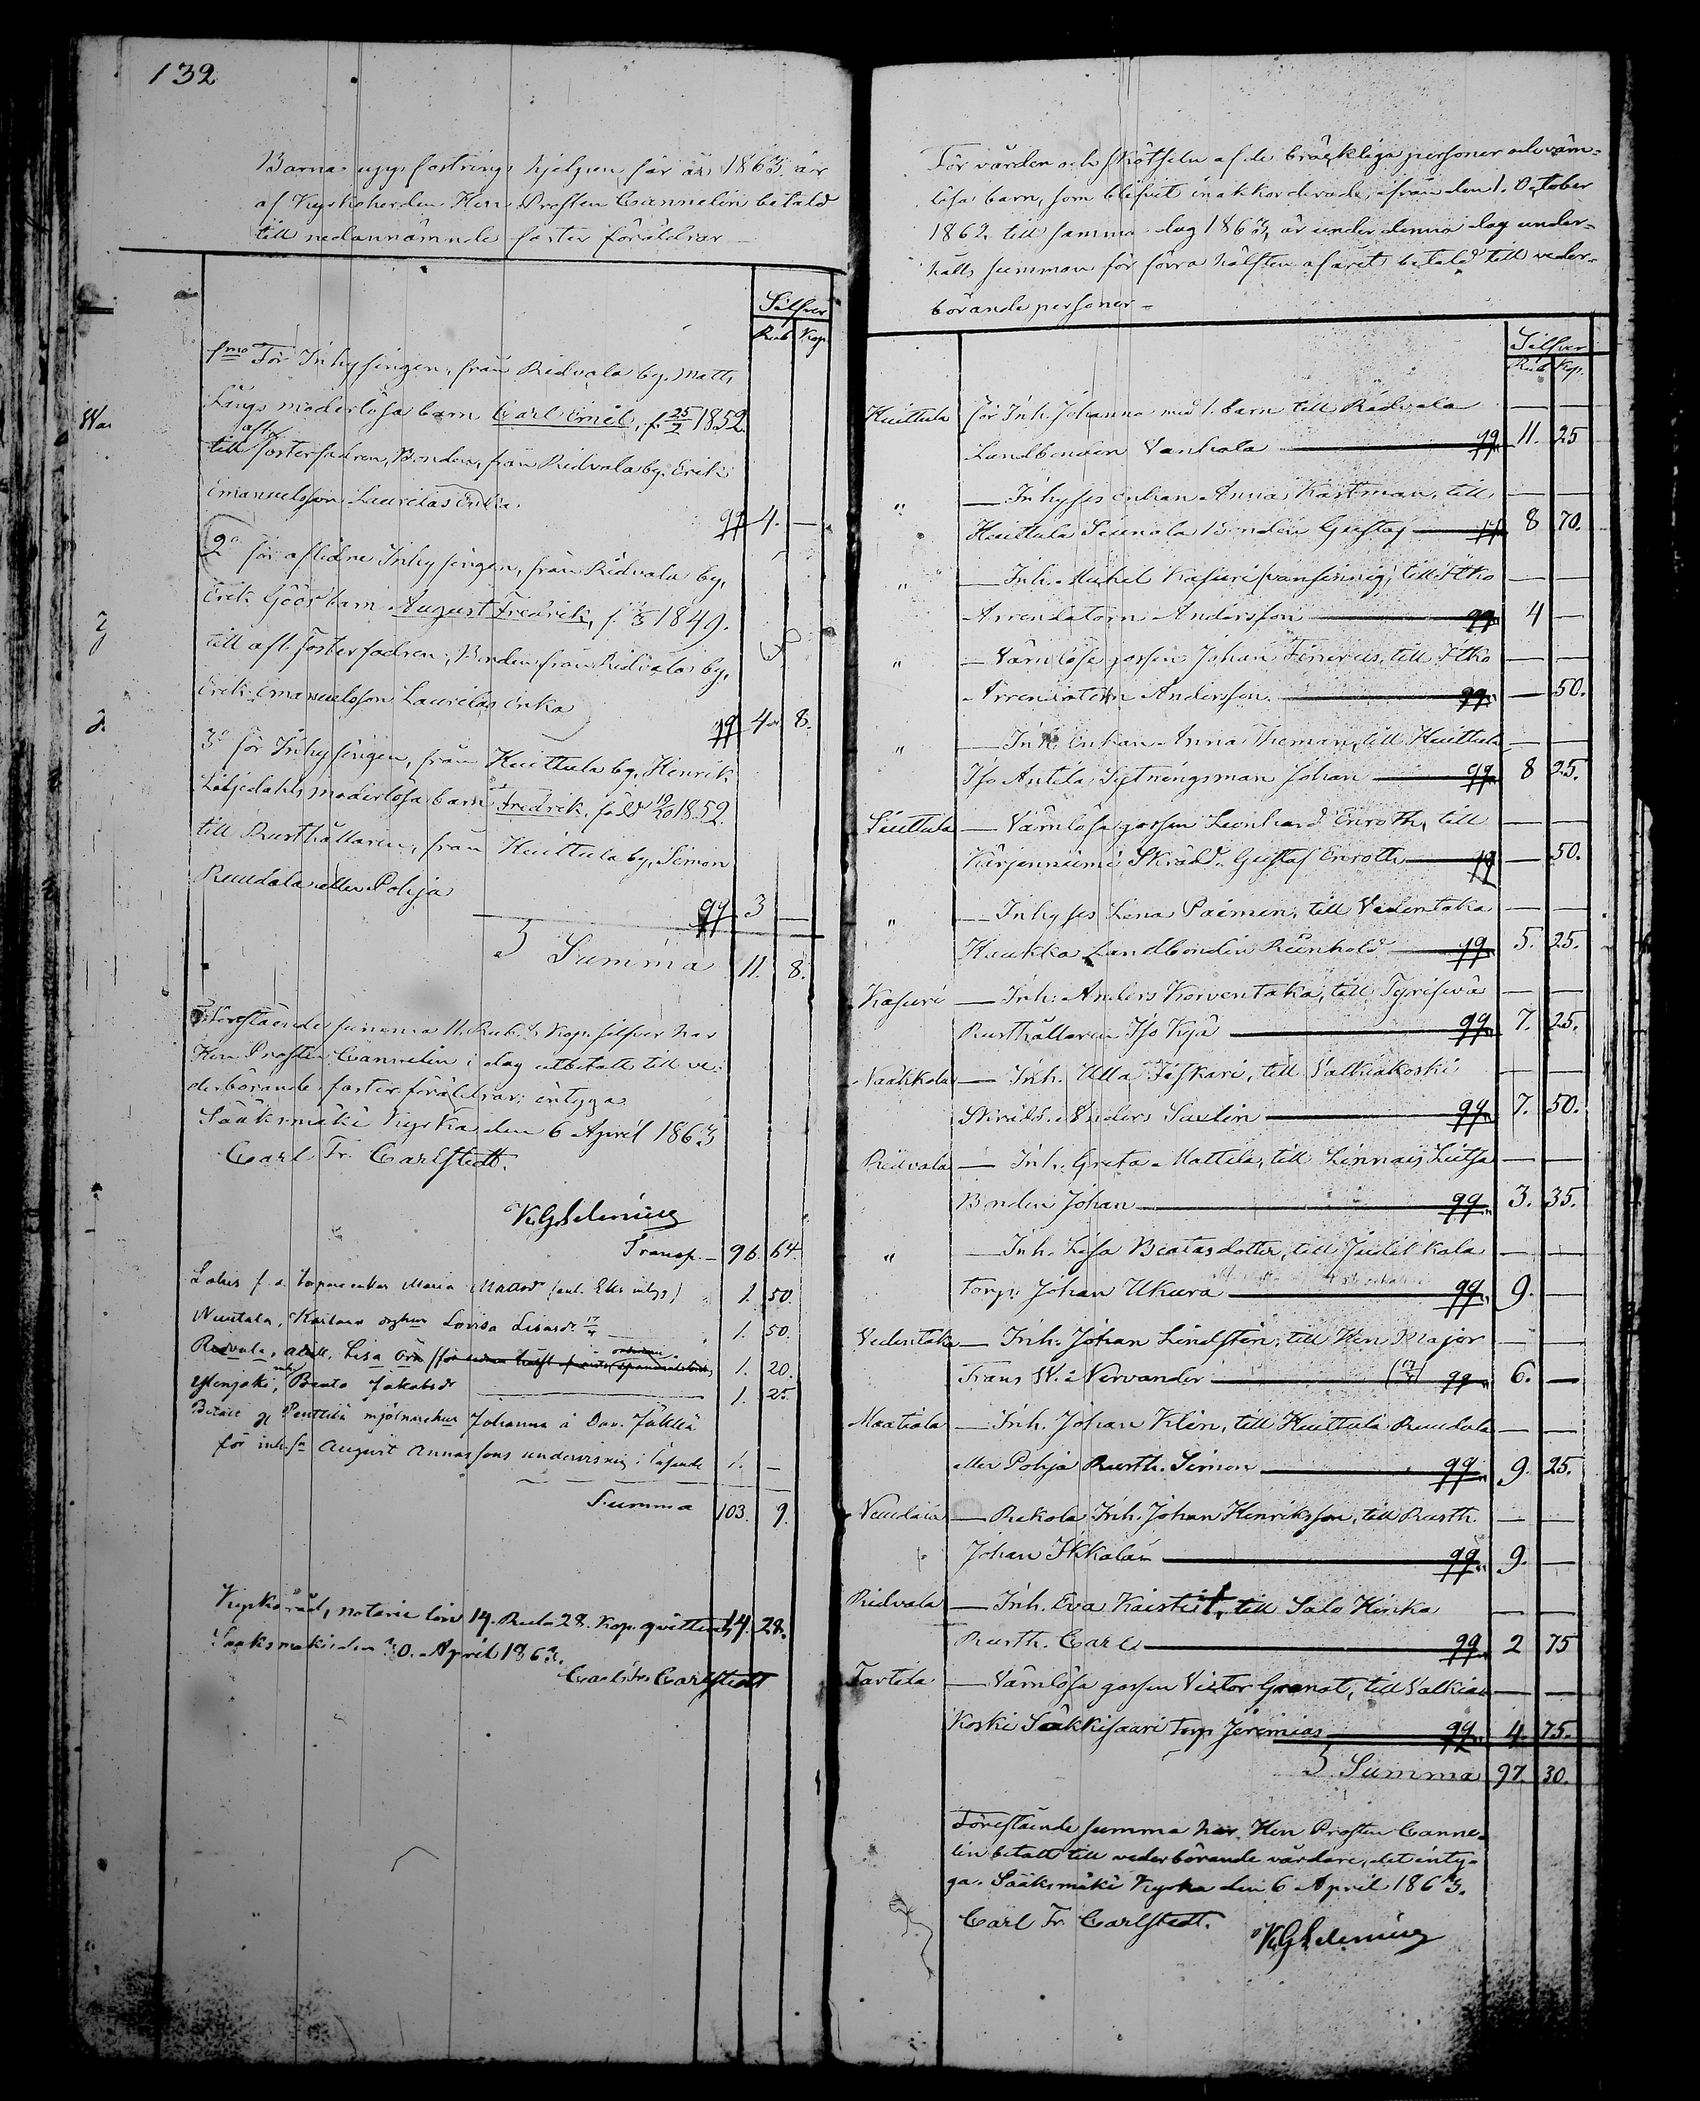 132
Barna uppfostrings hjelpen för år 1863, är
af Kyrkoherden Herr Prosten Cannelin betald
till nedannämnde foster föräldrar
Silfver
Rub. Kop.
1mo För Inhysingen, från Ridvala by, Matts
Långs moderlösa barn Carl Emil, f. 25/2 1852.
afl.
till fosterfadren, Bonden, från Ridvala by, Erik
Emanuelsson Laurilas Enka qq 4. —
2o för aflidne Inhysingen, från Ridvala by,
Erik Göös barn August Fredrik, f. 1849.
till afl. fosterfadren, Bonden från Ridvala by,
Erik Emanuelsson Laurilas Enka qq 4. 8.
3o för Inhysingen, från Huittula by, Henrik
Liljedahls moderlösa barn Fredrik, född 19/10 1852
till Rusthållaren, från Huittula by, Simon
Ruudala eller Pohja qq 3 —
Summa 11. 8.
Förestående summa 11. Rub. 8 Kop. silfver har
Herr Prosten Cannelin i dag utbetalt till ve-
derbörande foster föräldrar; intyga
Sääksmäki Kyrka den 6 April 1863
Carl Fr. Carlstedt.
Transp. — 96. 64.
Maria 1. 50.
Lovisa 1. 50.
Ridvala, Lisa 1. 20.
Jakobsdr 1. 25.
Betalt Penttilä Johanna
för inh. sn August Annassons undervisning i läsande 1. —
Summa 103. 9.
Kyrkoråds, notarie lön 14. Rub. 28. Kop. qvitteras 14. 28.
Sääksmäki den 30. April 1863.
Carl Fr. Carlstedt
För vården och skötseln af de bräckliga personer och värn-
lösa barn, som blifvit inakkorderade, ifrån den 1. October
1862. till samma dag 1863, är under denna dag under-
hålls summan för förra hälften af året betald till veder-
börande personer =
Silfver
Rub. Kop.
Huittula för Inh. Johanna med 1. barn till Ridvala — —
Landbonden Vanhala qq 11. 25
" — Inhyses enkan Anna Kastman, till — —
Huittula Seunala Bonden Gustaf qq 8 70.
" — Inh. Mickel Kasuri vansinnig, till — —
Arrendatorn Andersson qq 4 —
" — Värnlösa gossen Johan Finerus, till — —
Arrendatorn Andersson qq — 50.
" — Inh. Enkan Anna Theman, till Huittula — —
Iso Antila Sytningsman Johan qq 8 25.
Liuttula — Värnlösa gossen Leonhard Enroth, till — —
Kärjenniemi Skrädd. Gustaf Enroth qq — 50.
" — Inhyses Lena Paimen, till Vedentaka — —
Haukka Landbonden Reinhold qq 5. 25.
Kasuri — Inh. Anders Korventaka, till — —
Rusthållaren Iso qq 7. 25.
— Inh. Ulla till Valkiakoski — —
Skrädd. Anders qq 7. 50.
Ridvala — Inh. Greta Mattila, till Linnais — —
Bonden Johan qq 3. 35.
" — Inh. Lisa Beatasdotter, till Jutikkala — —
Torp. Johan Ukura qq 9. —
Vedentaka — Inh. Johan Lindsten, till Herr Major — —
Frans W. Nervander qq 6. —
Maatiala — Inh. Johan Klén, till Huittula Ruudala — —
eller Pohja Rusth. Simon qq 9. 25.
— Rekola Inh. Johan Henriksson, till Rusth. — —
Johan Ikkala qq 9. —
Ridvala — Inh. Eva till Salo — —
Rusth. Carl qq 2 75
Tarttila — Värnlösa gossen Victor Granat, till Valkia- — —
koski Säkkisaari Torp. Jeremias qq 4. 75.
Summa 97. 30.
Förestående summa har Herr Prosten Canne-
lin betalt till vederbörande vårdare, det inty-
gar. Sääksmäki Kyrka den 6 April 1863.
Carl Fr. Carlstedt.